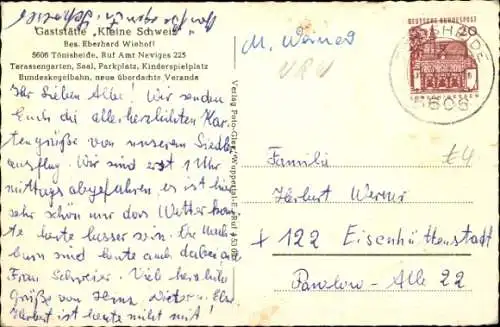 Gaststätte „Kleine Schweiz"
Bes. Eberhard Wiehoff
5606 Tönisheide, Ruf Amt Neviges 225
Terassengarten, Saal, Parkplatz, Kinderspielplatz
Bundeskegelbahn, neue überdachte Veranda
Ihr Lieben Alle! Wir senden
Euch die allerherzlichsten Kar-
tengrüße von unserem Siedler
ausflug. Wir sind erst 1 Uhr
mittags abgefahren, es ist hier
sehr schön nur das Wetter könn
te heute besser sein. Die
sind heute auch dabei und
Frau Schweier. Viel herzliche
Grüße von
Herbert ist heute nicht mit!
Verlag Foto-
M. Werner
DEUTSCHE BUNDESPOST
20
5606
£4
Familie
Herbert Werner
+ 122 Eisenhüttenstadt
Pawlow-Alle 22